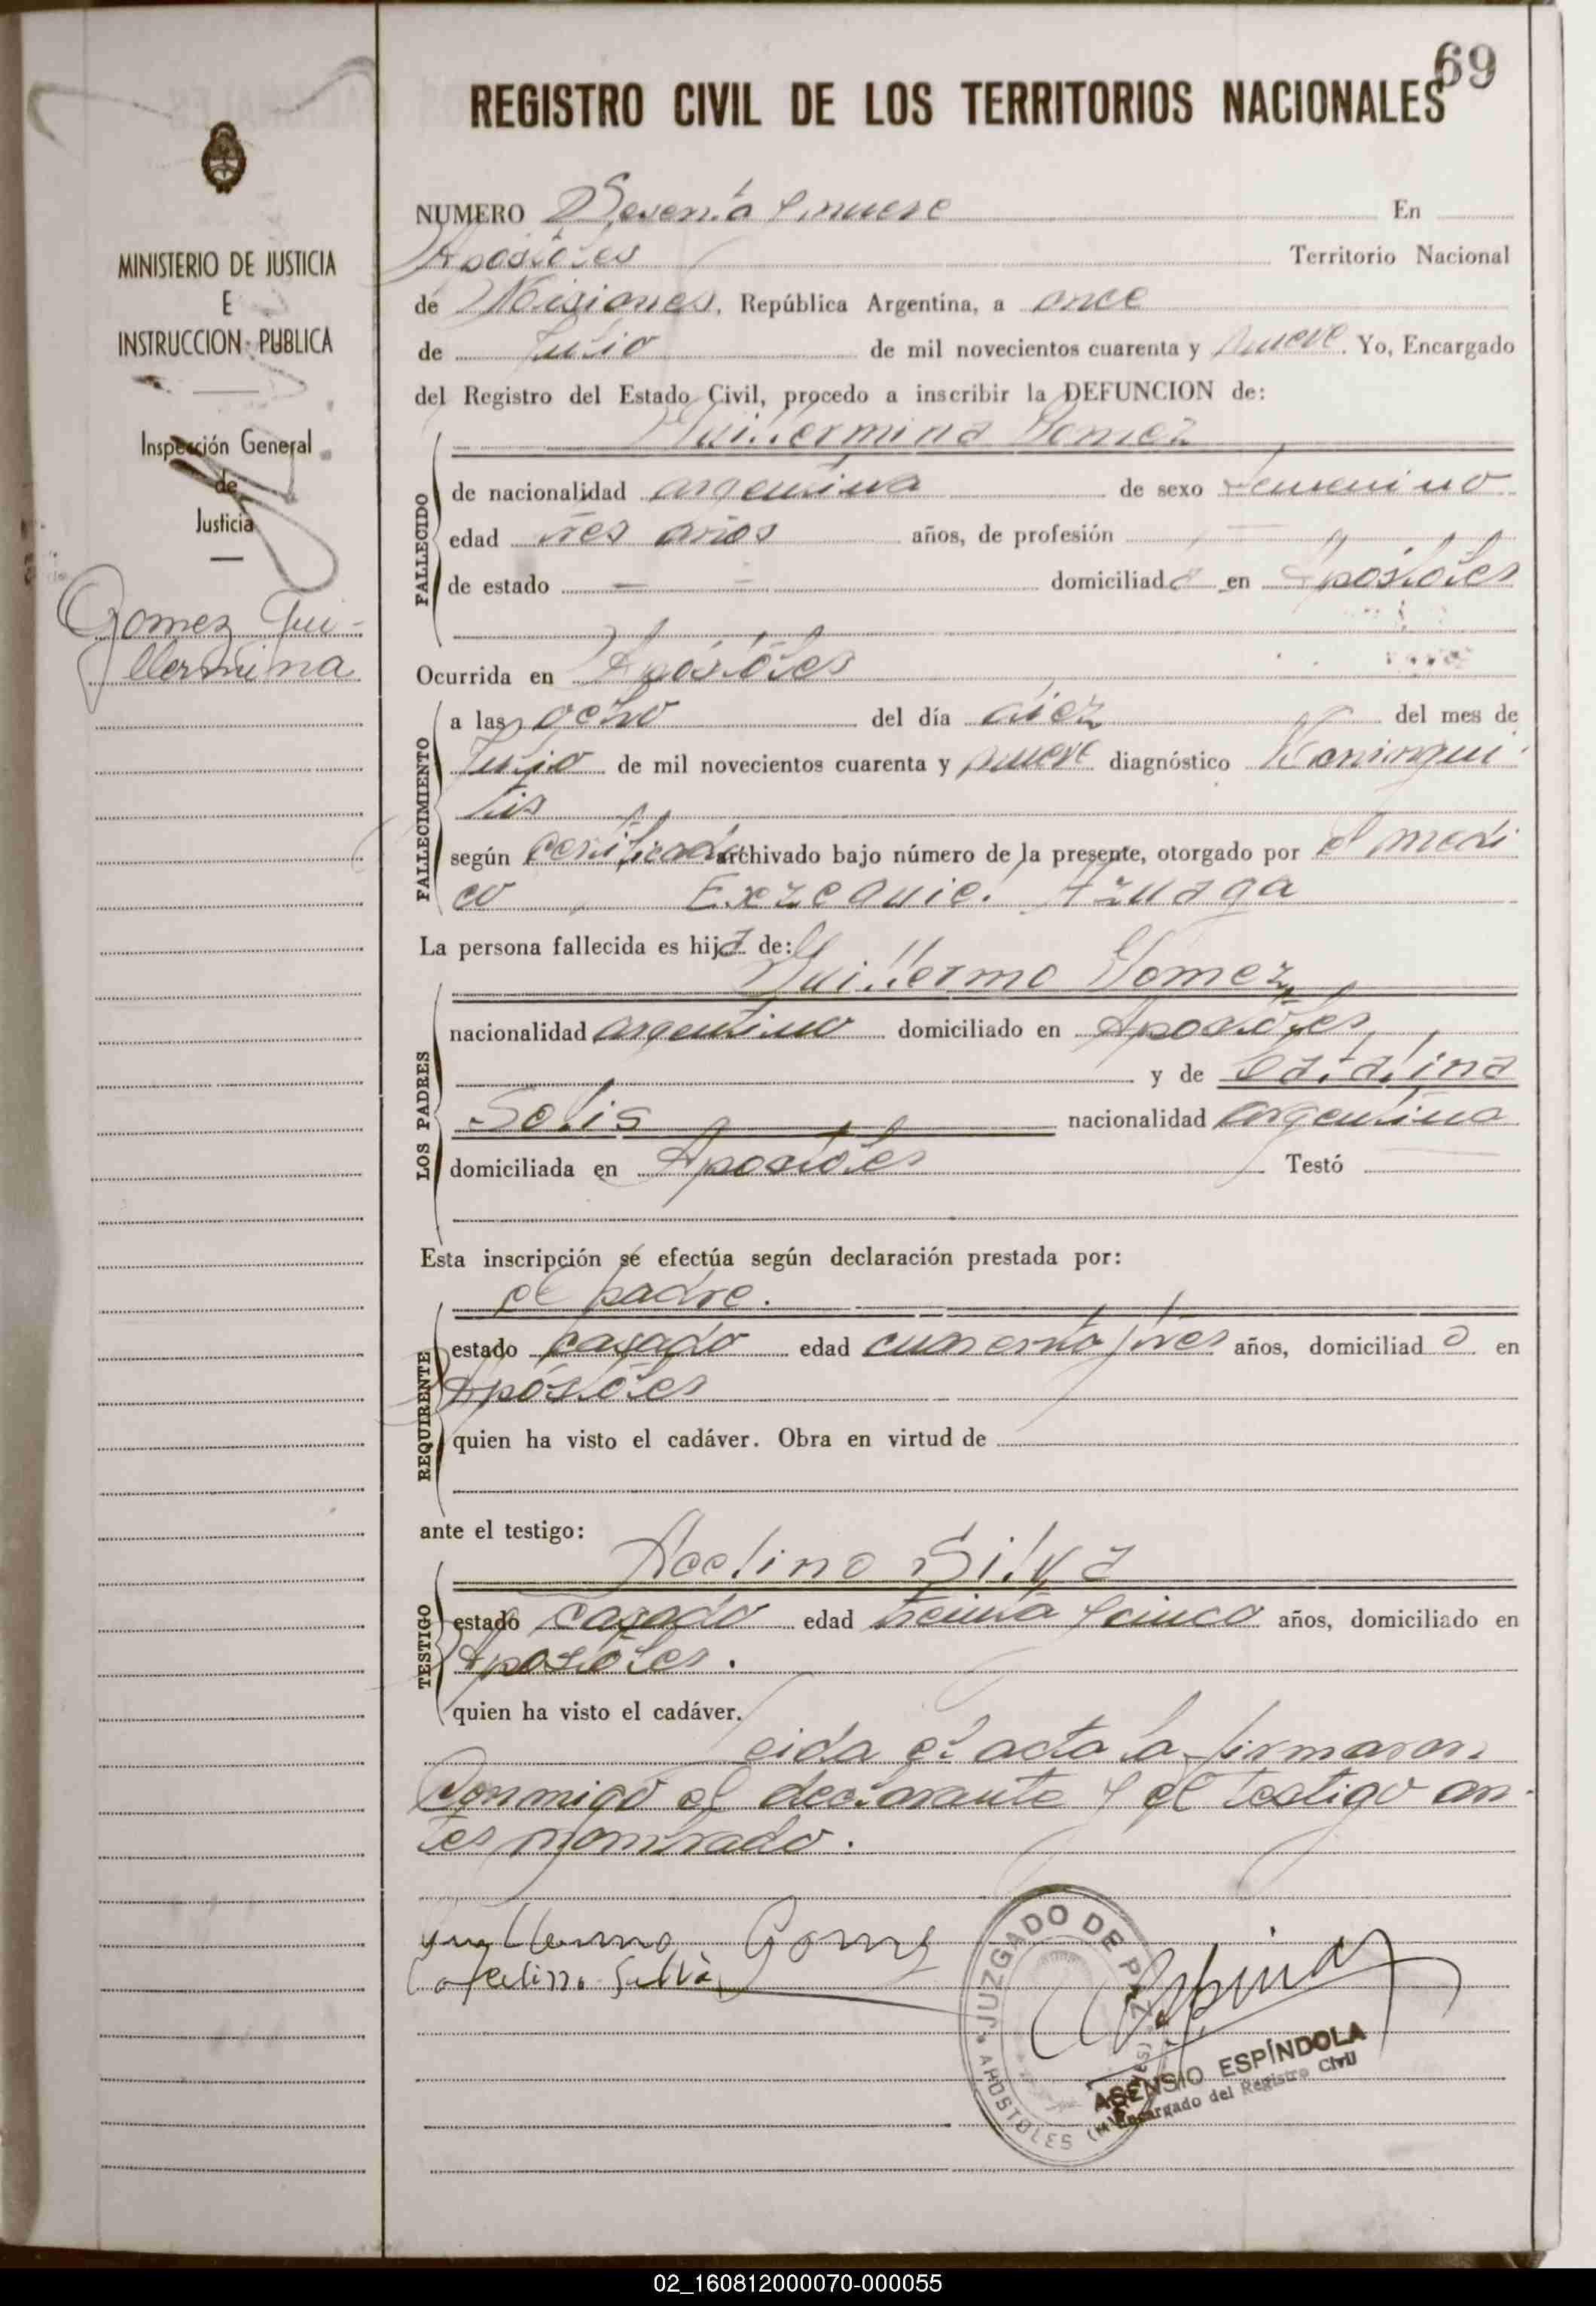 69
REGISTRO CIVIL DE LOS TERRITORIOS NACIONALES
MINISTERIO DE JUSTICIA
E
INSTRUCCION PUBLICA
Inspección General
de
Justicia
Gomez Gui-
llermina
NUMERO Sesenta y nueve En
Apóstoles Territorio Nacional
de Misiones, República Argentina, a once
de Julio de mil novecientos cuarenta y nueve. Yo, Encargado
del Registro del Estado Civil, procedo a inscribir la DEFUNCION de:
Guillermina Gomez
FALLECIDO
de nacionalidad argentina de sexo femenino
edad tres años años, de profesión
de estado domiciliada en Apóstoles
Ocurrida en Apóstoles
FALLECIMIENTO
a las ocho del día diez del mes de
Julio de mil novecientos cuarenta y nueve diagnóstico Meningui
tis
según certificado archivado bajo número de la presente, otorgado por el medi
co Exzequiel Azuaga
La persona fallecida es hija de:
Guillermo Gomez
LOS PADRES
nacionalidad argentino domiciliado en Apostoles
y de Catalina
Solis nacionalidad argentina
domiciliada en Apostoles Testó
Esta inscripción se efectúa según declaración prestada por:
el padre.
REQUIRENTE
estado casado edad cuarenta y tres años, domiciliado en
Apóstoles
quien ha visto el cadáver. Obra en virtud de
ante el testigo:
Silva
TESTIGO
estado casado edad treinta y cinco años, domiciliado en
Apóstoles.
quien ha visto el cadáver.
Leida el acta la firmaron
conmigo el declarante y el testigo an-
tes nombrado.
Guillermo Gomez
Silva
JUZGADO DE PAZ
APOSTOLES
ASENSIO ESPÍNDOLA
Encargado del Registro Civil
02_160812000070-000055